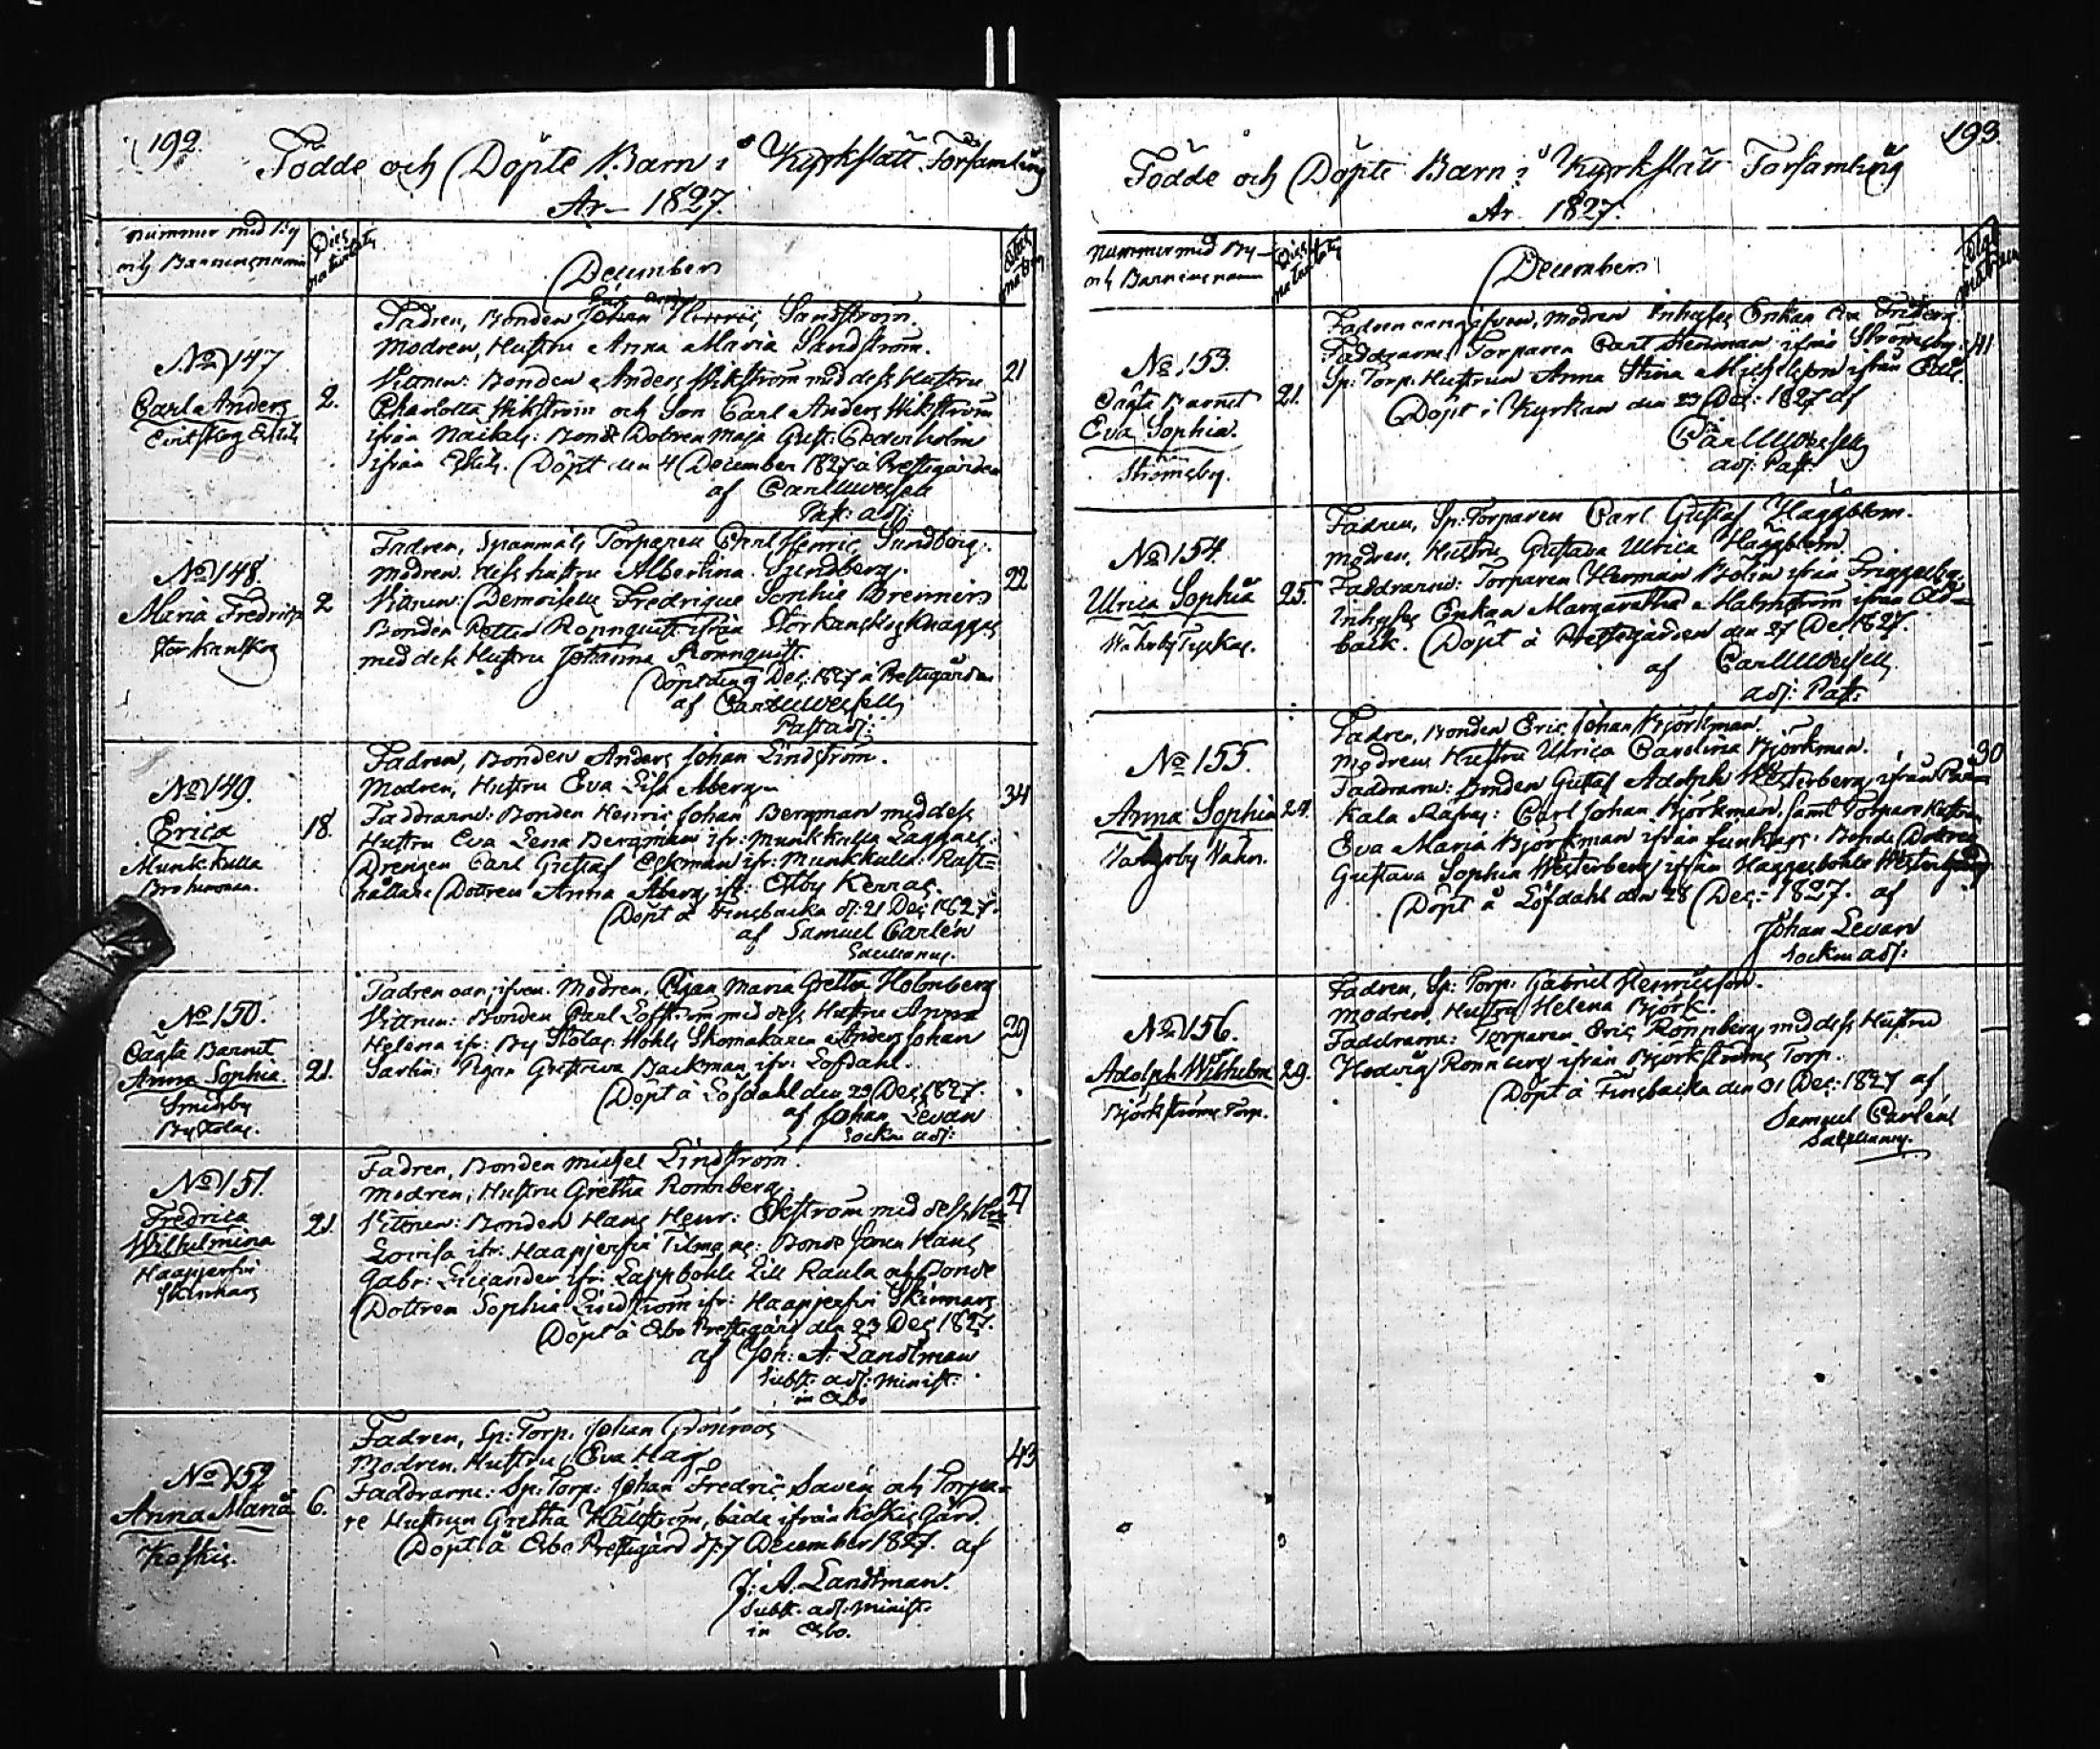 192.
Födde och Döpte Barn i Kyrkslätt Församling
År 1827.
Nummer med By
och Barnens namn
Dies natalis
December
Ætas matris
No 147
Carl Anders
2.
Fadren, Bonden Johan Sandström.
Modren, Hustru Anna Maria Sandström.
21
Vittnen: Bonden Anders Wikström med dess Hustru
Charlotta Wikström och Son Carl Anders Wikström
ifrån Bonde Dottren Maja Gust: Cederholm
ifrån Döpt den 4 December 1827 å Prestegården
af Carl
Past: adj:
No 148.
Maria Fredrica
2
Fadren, Spanmåls Torparen Carl Henric Sundberg.
Modren. dess hustru Albertina Sundberg.
22
Vittnen: Demoiselle Fredrique Sophie Brenner
Bonden Petter Rönnquist ifrån Storkanskog Knagges
med dess Hustru Johanna Rönnquist.
Döpt den 9 Dec: 1827 å Prestegården
af Carl
Past adj:
No 149.
Erica
18.
Munkkulla
Fadren, Bonden Anders Johan Lindström.
Modren, Hustru Eva Lisa Åberg
34
Faddrarne: Bonden Henric Johan Bergman med dess
Hustru Eva Lena Bergman ifr: Munkkulla Laggars:
Drengen Carl Gustaf Eckman ifr: Munkkulla: Rust=
hållare Dottren Anna Åberg ifr: Estby Kerras.
Döpt å Finsbacka d: 21 Dec 1827.
af Samuel Carlén
Sacellanus.
No 150.
Oägta Barnet
Anna Sophia.
21.
Smedsby
By Stolas.
Fadren oangifven. Modren, Pigan Maria Gretha Holmberg
Vittnen: Bonden Carl Löfström med dess Hustru Anna
29
Helena ifr: By Stolas: Hohls Skomakaren Anders Johan
Sarlin: Pigan Gustava Backman ifr: Löfdahl.
Döpt å Löfdahl den 23 Dec 1827.
af Johan Levan
Sockne adj:
No 151.
Fredrica
Wilhelmina
21.
Haapjerfvi
Skinnars
Fadren, Bonden Michel Lindström.
Modren, Hustru Gretha Rönnberg.
27
Vittnen: Bonden Hans Henr: Ekström med dess Hu
Lovisa ifr: Haapjerfvi Bonde Sonen Hans
Gabr: ifr: Lappböhle Lill Raula och Bonde
Dottren Sophia Lindström ifr: Haapjerfvi Skinnars
Döpt å Esbo Prestegård den 23 Dec 1827.
af Joh: A. Landtman
Subst. adj: Minist:
in Esbo
No 152
Anna Maria
6.
Koskis.
Fadren, Sp: Torp: Johan Grönroos
Modren. Hustru Eva Hag
43
Faddrarne: Sp: Torp: Johan Fredric Savén och Torpa=
re Hustrun Gretha Hällström, båda ifrån Koskis Gård.
Döpt å Esbo Prestegård d: 7 December 1827. af
J: A. Landtman.
Subst. adj: Minist.
in Esbo.
193.
Födde och Döpte Barn i Kyrkslätt Församling
År 1827.
Nummer med By
och Barnens namn
Dies natalis
December
No 153.
Oägta Barnet
Eva Sophia.
21.
Strömsby.
Fadren oangifven, Modren Inhyses Enkan Eva Friberg
Faddrarne, Torparen Carl Stenman ifrån Strömsby.
41
Sp: Torp: Hustrun Anna Stina Michelsson ifrån
Döpt i Kyrkan den 23 Dec: 1827 af
Carl
adj: Past:
No 154.
Ulrica Sophia
25.
Fadren, Sp: Torparen Carl Gustaf Häggblom.
Modren, Hustru Gustava Ulrica Häggblom.
Faddrarne: Torparen Herman Bolin ifrån
Inhyses Enkan Margaretha Malmström ifrån
bäck. Döpt å Prestegården den 27 Dec 1827.
af Carl
adj: Past:
No 155.
Anna Sophia
Fadren, Bonden Eric Johan Björkman.
Modren, Hustru Ulrica Carolina Björkman.
30
Faddrarne: Bonden Gustaf Adolph Westerberg, ifrån
Kala Räfvs: Carl Johan Björkman, samt Torpare Hustrun
Eva Maria Björkman ifrån Bonde Dottren
Gustava Sophia Westerberg ifrån Haggesböhle Westergård
Döpt å Löfdahl den 28 Dec: 1827. af
Johan Levan
Sockne adj:
No 156.
Adolph Wilhelm
29.
Björkströms Torp.
Fadren, Sp: Torp: Gabriel Henricsson.
Modren, Hustru Helena Björk.
Faddrarne: Torparen Eric Rönnberg, med dess Hustru
Hedvig Rönnberg ifrån Björkströms Torp.
Döpt å Finsbacka den 31 Dec: 1827 af
Samuel Carlén
Sacellanus.